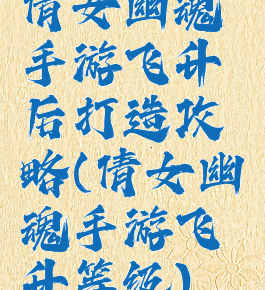 倩女幽魂
手游飞升
后打造攻
略(倩女幽
魂手游飞
升等级)